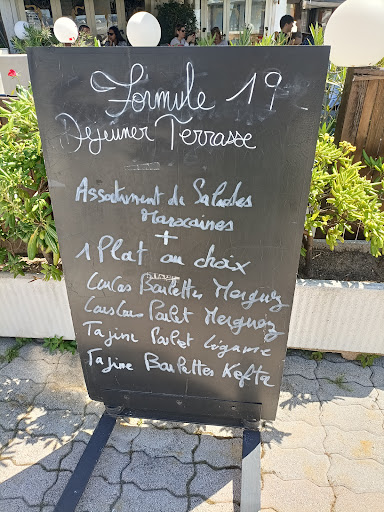 Formule 19-
Dejeuner Terrasse
Assortiment de Salades
Marocaines
+
1 Plat au choix
Couscous Boulettes Merguez
Couscous Poulet Merguez
Tajine Poulet Légume
Tajine Boulettes Kefta